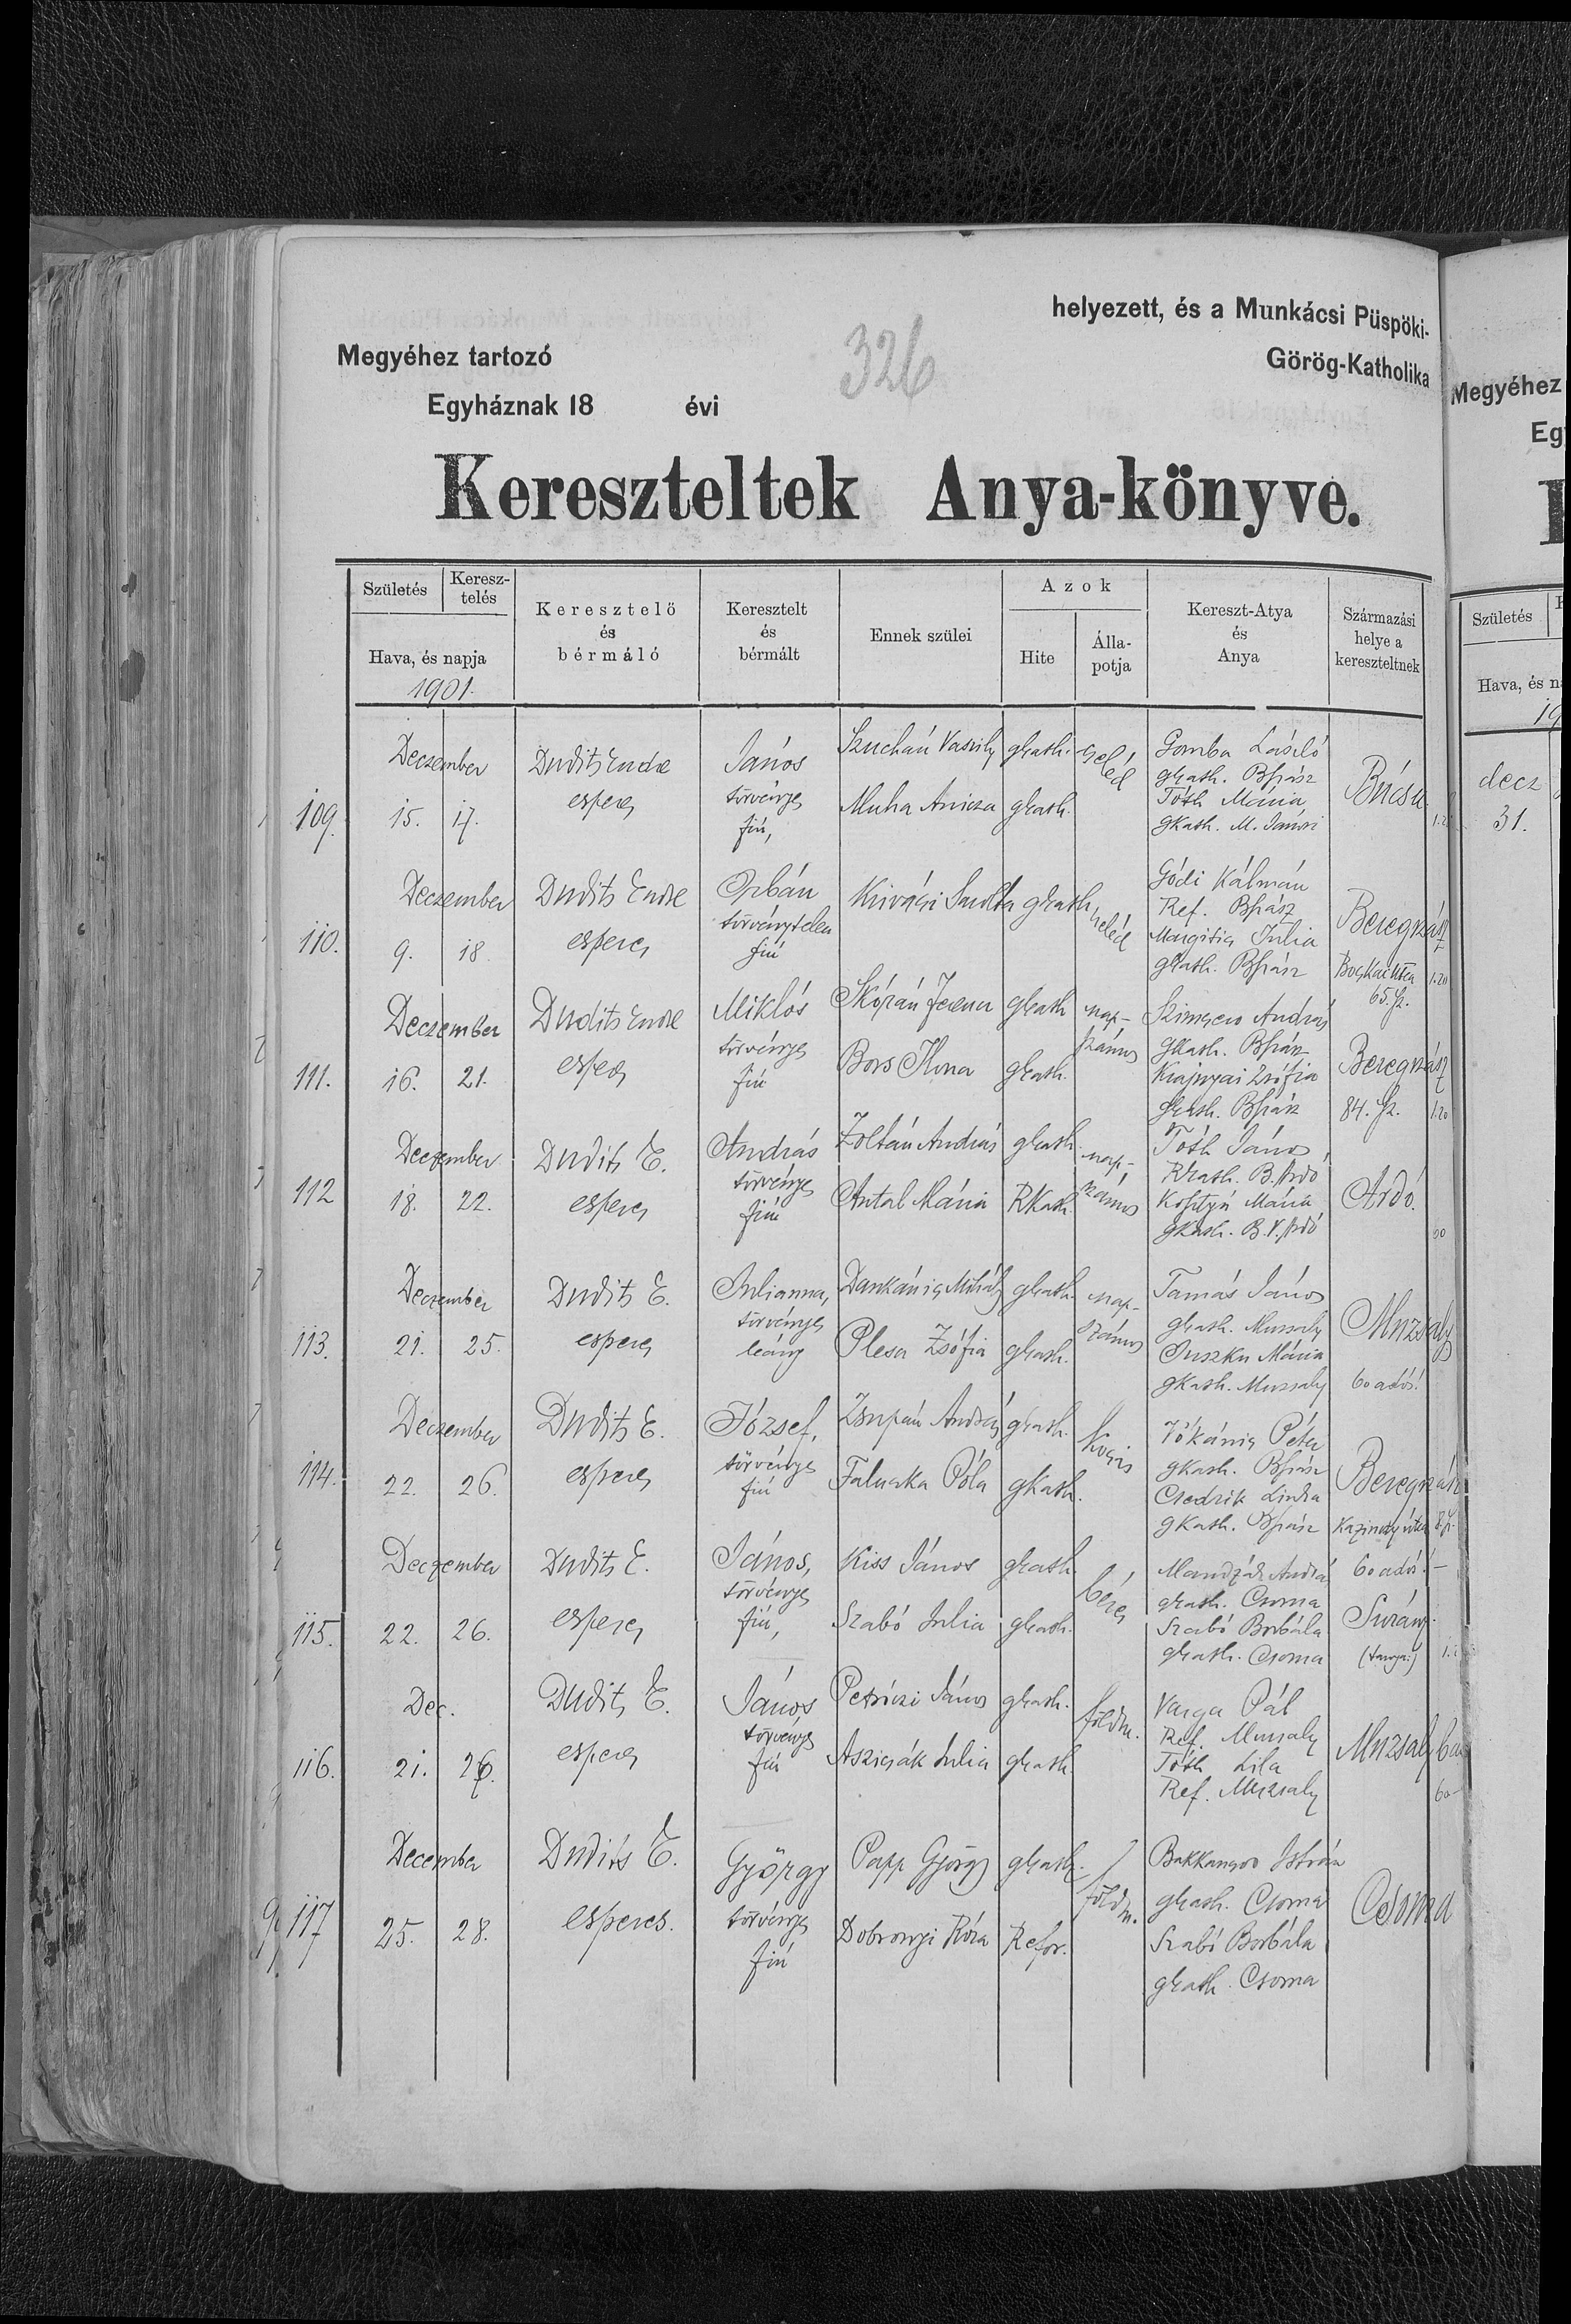 helyezett, és a Munkácsi Püspöki-
Megyéhez tartozó
326
Görög-Katholika
Egyháznak 18 évi
Kereszteltek Anya-könyve.
Születés Keresz-telés Keresztelő és bérmáló Keresztelt és bérmált Ennek szülei Azok Kereszt-Atya és Anya Származási helye a kereszteltnek
Hava, és napja Hite Álla-potja
1901.
109. Deczember 15. 17.
Dudits Endre esperes
János törvényes fiú,
Szuchán Vaszily gkath. cseléd
Muha Anicza gkath.
Gomba László
gkath. Bfász
Tóth Mária
gkath. M. Jánosi
Bácsu
110. Deczember 9. 18.
Dudits Endre esperes
Orbán törvénytelen fiú
gkath. cseléd
Gódi Kálmán
Ref. Bfász
Margitics Julia
gkath. Bfász
Beregszász
1.20
65. sz.
111. Deczember 16. 21.
Dudits Endre esperes
Miklós törvényes fiú
Ferencz gkath nap-számos
Bors Ilona gkath.
András
gkath. Bfász
Krajnyai Zsófia
gkath. Bfász
Beregszász
84. sz. 1.20
112 Deczember 18. 22.
Dudits E. esperes
András törvényes fiú
Zoltán András gkath. nap-számos
Antal Mária Rkath.
Tóth János
Rkath. B. Ardó
Mária
gkath. B.V. Ardó
Ardó.
113. Deczember 21. 25.
Dudits E. esperes
Julianna, törvényes leány
Dankánics Mihály gkath. nap-számos
Plesa Zsófia gkath.
Tamás János
gkath. Muzsaly
Juszku Mária
gkath. Muzsaly
Muzsaly
60 adós!
114. Deczember 22. 26.
Dudits E. esperes
József, törvényes fiú
Zsupán András gkath. kocsis
Póla gkath.
Péter
gkath. Bfász
Csedrik Linka
gkath. Bfász
Beregszász
Kazinczy utca 8. sz.
115. Deczember 22. 26.
Dudits E. esperes
János, törvényes fiú,
Kiss János gkath. béres
Szabó Julia gkath.
Mandzák András
gkath. Csoma
Szabó Borbála
gkath. Csoma
60 adós!
Surány
(tanya)
116. Dec. 21. 26.
Dudits E. esperes
János, törvényes fiú
Petróczi János gkath. földm.
Julia gkath.
Varga Pál
Ref. Muzsaly
Tóth Lila
Ref. Muzsaly
Muzsaly
117 December 25. 28.
Dudits E. esperes.
György törvényes fiú
Papp György gkath. földm.
Dobronyi Róza Refor.
István
gkath. Csoma
Szabó Borbála
gkath. Csoma
Csoma
Megyéhez
Születés
Hava, és
decz
31.